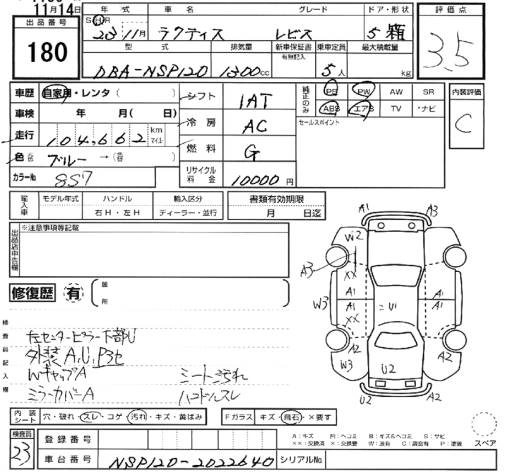 11月14日
出品番号
180
年式 車名 グレード ドア・形状
S H R 23/11月 ラクティス レピス 5 箱
評価点
3.5
型式 排気量 新車保証書 乗車定員 最大積載量
有無記入
DBA-NSP120 1300cc 5人 kg
車歴 自家用・レンタ( )
シフト 1AT
純正のみ PS PW AW SR
ABS エアB TV ・ナビ
内装評価
C
車検 年 月( 日)
冷房 AC
セールスポイント
走行 104,662 km マイル
燃料 G
色 ブルー →( )
カラーNo 8S7
リサイクル料金 10000円
輸入車 モデル年式 ハンドル 輸入区分 書類有効期限
右H・左H ディーラー・並行 月 日迄
出品店申告欄 ※注意事項等記載
修復歴 有 箇所
検査員記入欄
左センターピラー下部U
外装A,U,P3セ
WキャップA シート汚れ
ミラーカバーA ハンドルスレ
A1 A3
W2
A3 XX
W3 A1 A1 A1
XX U1
A2 A2
W3 U2
U2 A2
内装シート 穴・破れ・スレ・コゲ・汚れ・キズ・黄ばみ Fガラス キズ・飛石・×要す
A:キズ H:ヘコミ B:キズ&ヘコミ S:サビ
××:交換済 ×:交換要 W:波有 C:腐食有 P:塗装
スペア
検査員 23
登録番号
車台番号 NSP120-2022640 シリアルNo